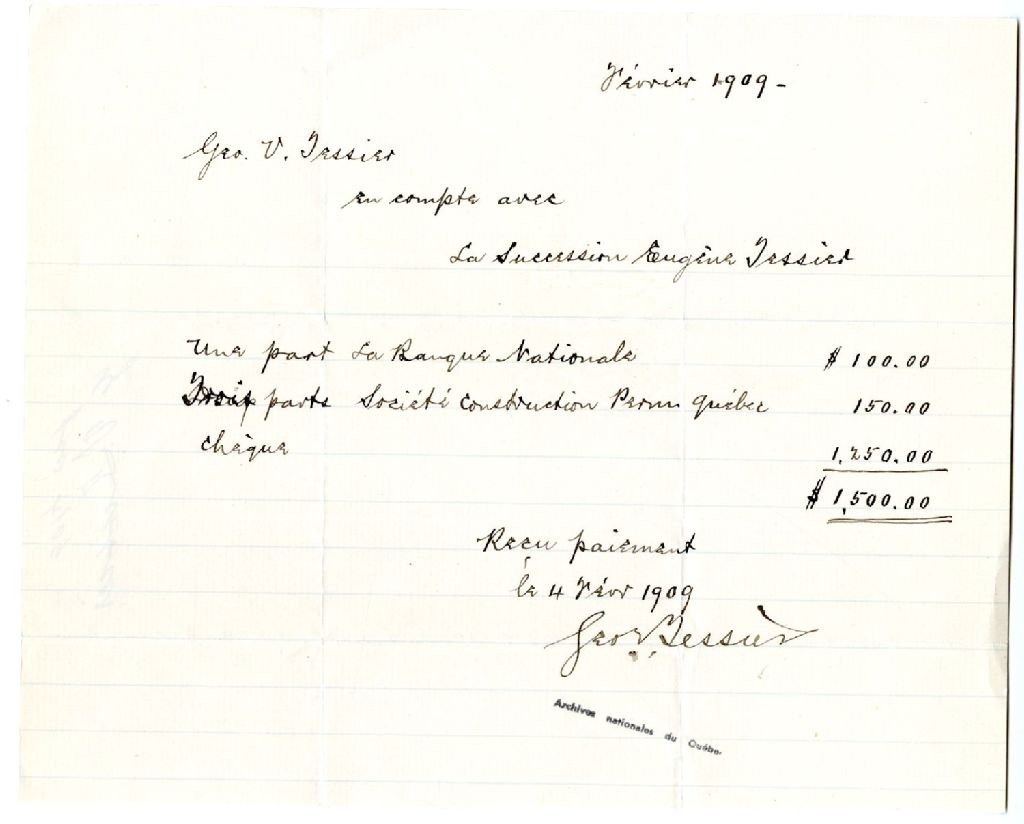 Février 1909-
Geo. V. Tessier
en compte avec
La Succession Eugène Tessier
Une part La Banque Nationale $ 100.00
Trois parts Société Construction Perm Québec 150.00
Chèque 1,250.00
$ 1,500.00
Reçu paiement
le 4 Févr 1909
Geo V. Tessier
Archives nationales du Québec